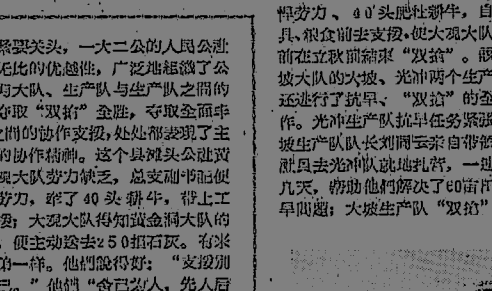 紧要关头，一大二公的人民公社
无比的优越性，广泛地组织了公
与大队、生产队与生产队之间的
夺取“双抢”全胜，夺取全面丰
之间的协作支援，处处都表现了主
的协作精神。这个县滩头公社黄
大队劳力缺乏，总支副书记便
劳力，牵了40头耕牛，带上工
援；大观大队得知黄金洞大队的
，便主动送去250担石灰。有米
弟一样。他们说得好：“支援别
己。”他们“舍己为人，先人后
悍劳力、40头肥壮耕牛，自
具、粮食前去支援，使大观大队
前在立秋前结束“双抢”。
坡大队的大坡、光冲两个生产
还进行了抗旱、“双抢”的全
作。光冲生产队抗旱任务紧张
坡生产队队长刘同云亲自带
社员去光冲队就地扎营，一连
几天，帮助他们解决了60亩田
旱问题；大坡生产队“双抢”